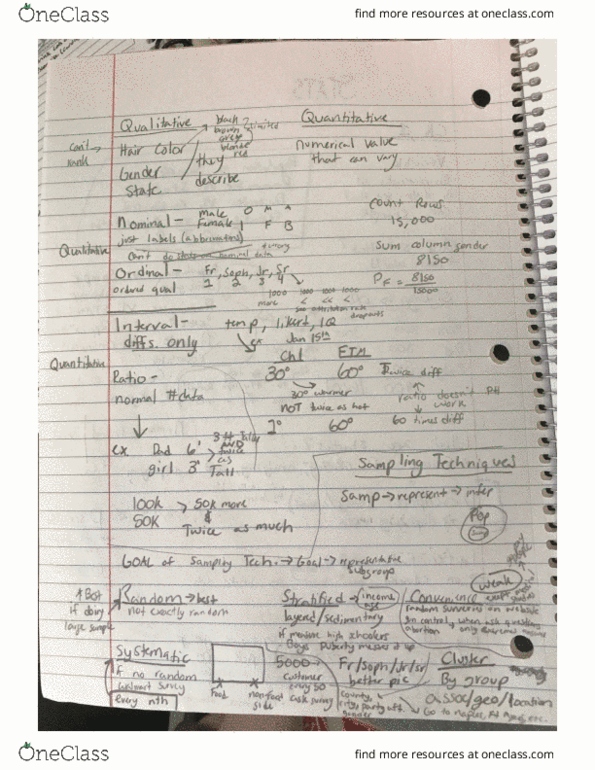 OneClass
find more resources at oneclass.com
Qualitative
black
brown
limited
blonde
red
Quantitative
can't rank
Hair Color
Gender
State
they describe
numerical value
that can vary
Nominal - male 0 M A
female 1 F B
just labels (abbreviations)
Count Rows
15,000
Qualitative
Sum column gender
8150
Ordinal - Fr, Soph, Jr, Sr
ordered qual 1 2 3 4
PF = 8150
15000
1000 1000 1000 1000
more < << <
dropouts
Interval - temp, likert, IQ
diffs. only
ex
Jan 15th
Chi FTM
Quantitative
30° 60° Twice diff
Ratio -
normal #data
30° warmer
NOT twice as hot
ratio doesn't
work
1° 60° 60 times diff
ex Dad 6'
girl 3'
3 ft taller
AND
twice
as
Tall
Sampling Techniques
Samp → represent → infer
Pop
100k > 50k more
50k &
Twice as much
GOAL of Sampling Tech. → Goal → representative
subgroup
weak
Best
if doing
large sample
Random → best
not exactly random
Stratified → income
age
layered/sedimentary
if measure high schoolers
Boys puberty
Convenience
random surveys on website
abortion
Systematic
if no random
every nth
food
non food
side
5000
customer
every 50
ask survey
Fr/Soph/Jr/Sr
better pic
county,
city, party aff.
gender
Cluster
By group
assoc/geo/location
Go to naples,
OneClass
find more resources at oneclass.com